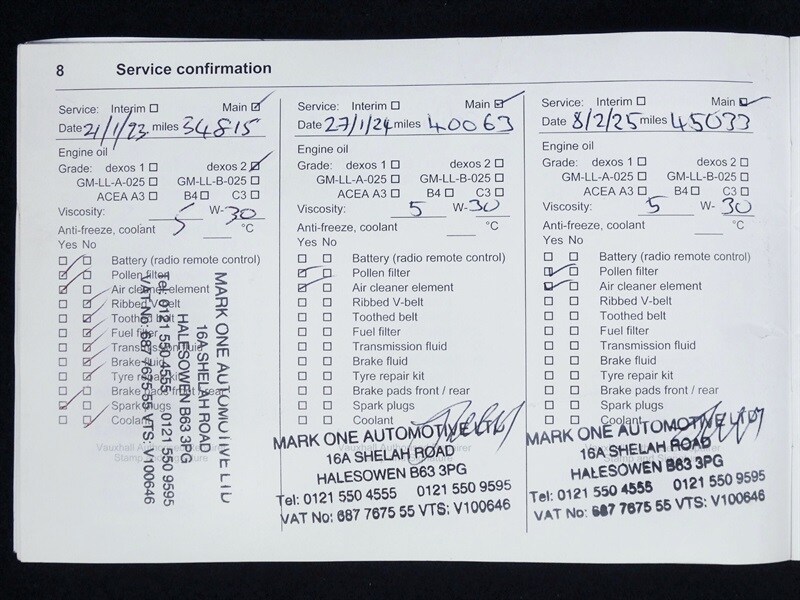 8 Service confirmation
Service: Interim Main
Date 21/1/23 miles 34815
Engine oil
Grade: dexos 1 dexos 2
GM-LL-A-025 GM-LL-B-025
ACEA A3 B4 C3
Viscosity: 5 W-30
Anti-freeze, coolant °C
Yes No
Battery (radio remote control)
Pollen filter
Air cleaner element
Ribbed V-belt
Toothed belt
Fuel filter
Transmission fluid
Brake fluid
Tyre repair kit
Brake pads front / rear
Spark plugs
Coolant
MARK ONE AUTOMOTIVE LTD
16A SHELAH ROAD
HALESOWEN B63 3PG
Tel: 0121 550 4555 0121 550 9595
VAT No: 687 7675 55 VTS: V100646
Service: Interim Main
Date 27/1/24 miles 40063
Engine oil
Grade: dexos 1 dexos 2
GM-LL-A-025 GM-LL-B-025
ACEA A3 B4 C3
Viscosity: 5 W-30
Anti-freeze, coolant °C
Yes No
Battery (radio remote control)
Pollen filter
Air cleaner element
Ribbed V-belt
Toothed belt
Fuel filter
Transmission fluid
Brake fluid
Tyre repair kit
Brake pads front / rear
Spark plugs
Coolant
MARK ONE AUTOMOTIVE LTD
16A SHELAH ROAD
HALESOWEN B63 3PG
Tel: 0121 550 4555 0121 550 9595
VAT No: 687 7675 55 VTS: V100646
Service: Interim Main
Date 8/2/25 miles 45033
Engine oil
Grade: dexos 1 dexos 2
GM-LL-A-025 GM-LL-B-025
ACEA A3 B4 C3
Viscosity: 5 W-30
Anti-freeze, coolant °C
Yes No
Battery (radio remote control)
Pollen filter
Air cleaner element
Ribbed V-belt
Toothed belt
Fuel filter
Transmission fluid
Brake fluid
Tyre repair kit
Brake pads front / rear
Spark plugs
Coolant
MARK ONE AUTOMOTIVE LTD
16A SHELAH ROAD
HALESOWEN B63 3PG
Tel: 0121 550 4555 0121 550 9595
VAT No: 687 7675 55 VTS: V100646